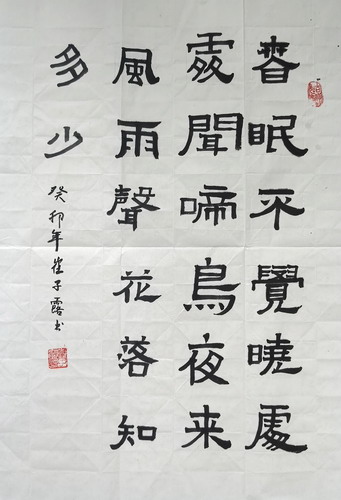 春眠不覺曉處
處聞啼鳥夜来
風雨聲花落知
多少
癸卯年崔子露书